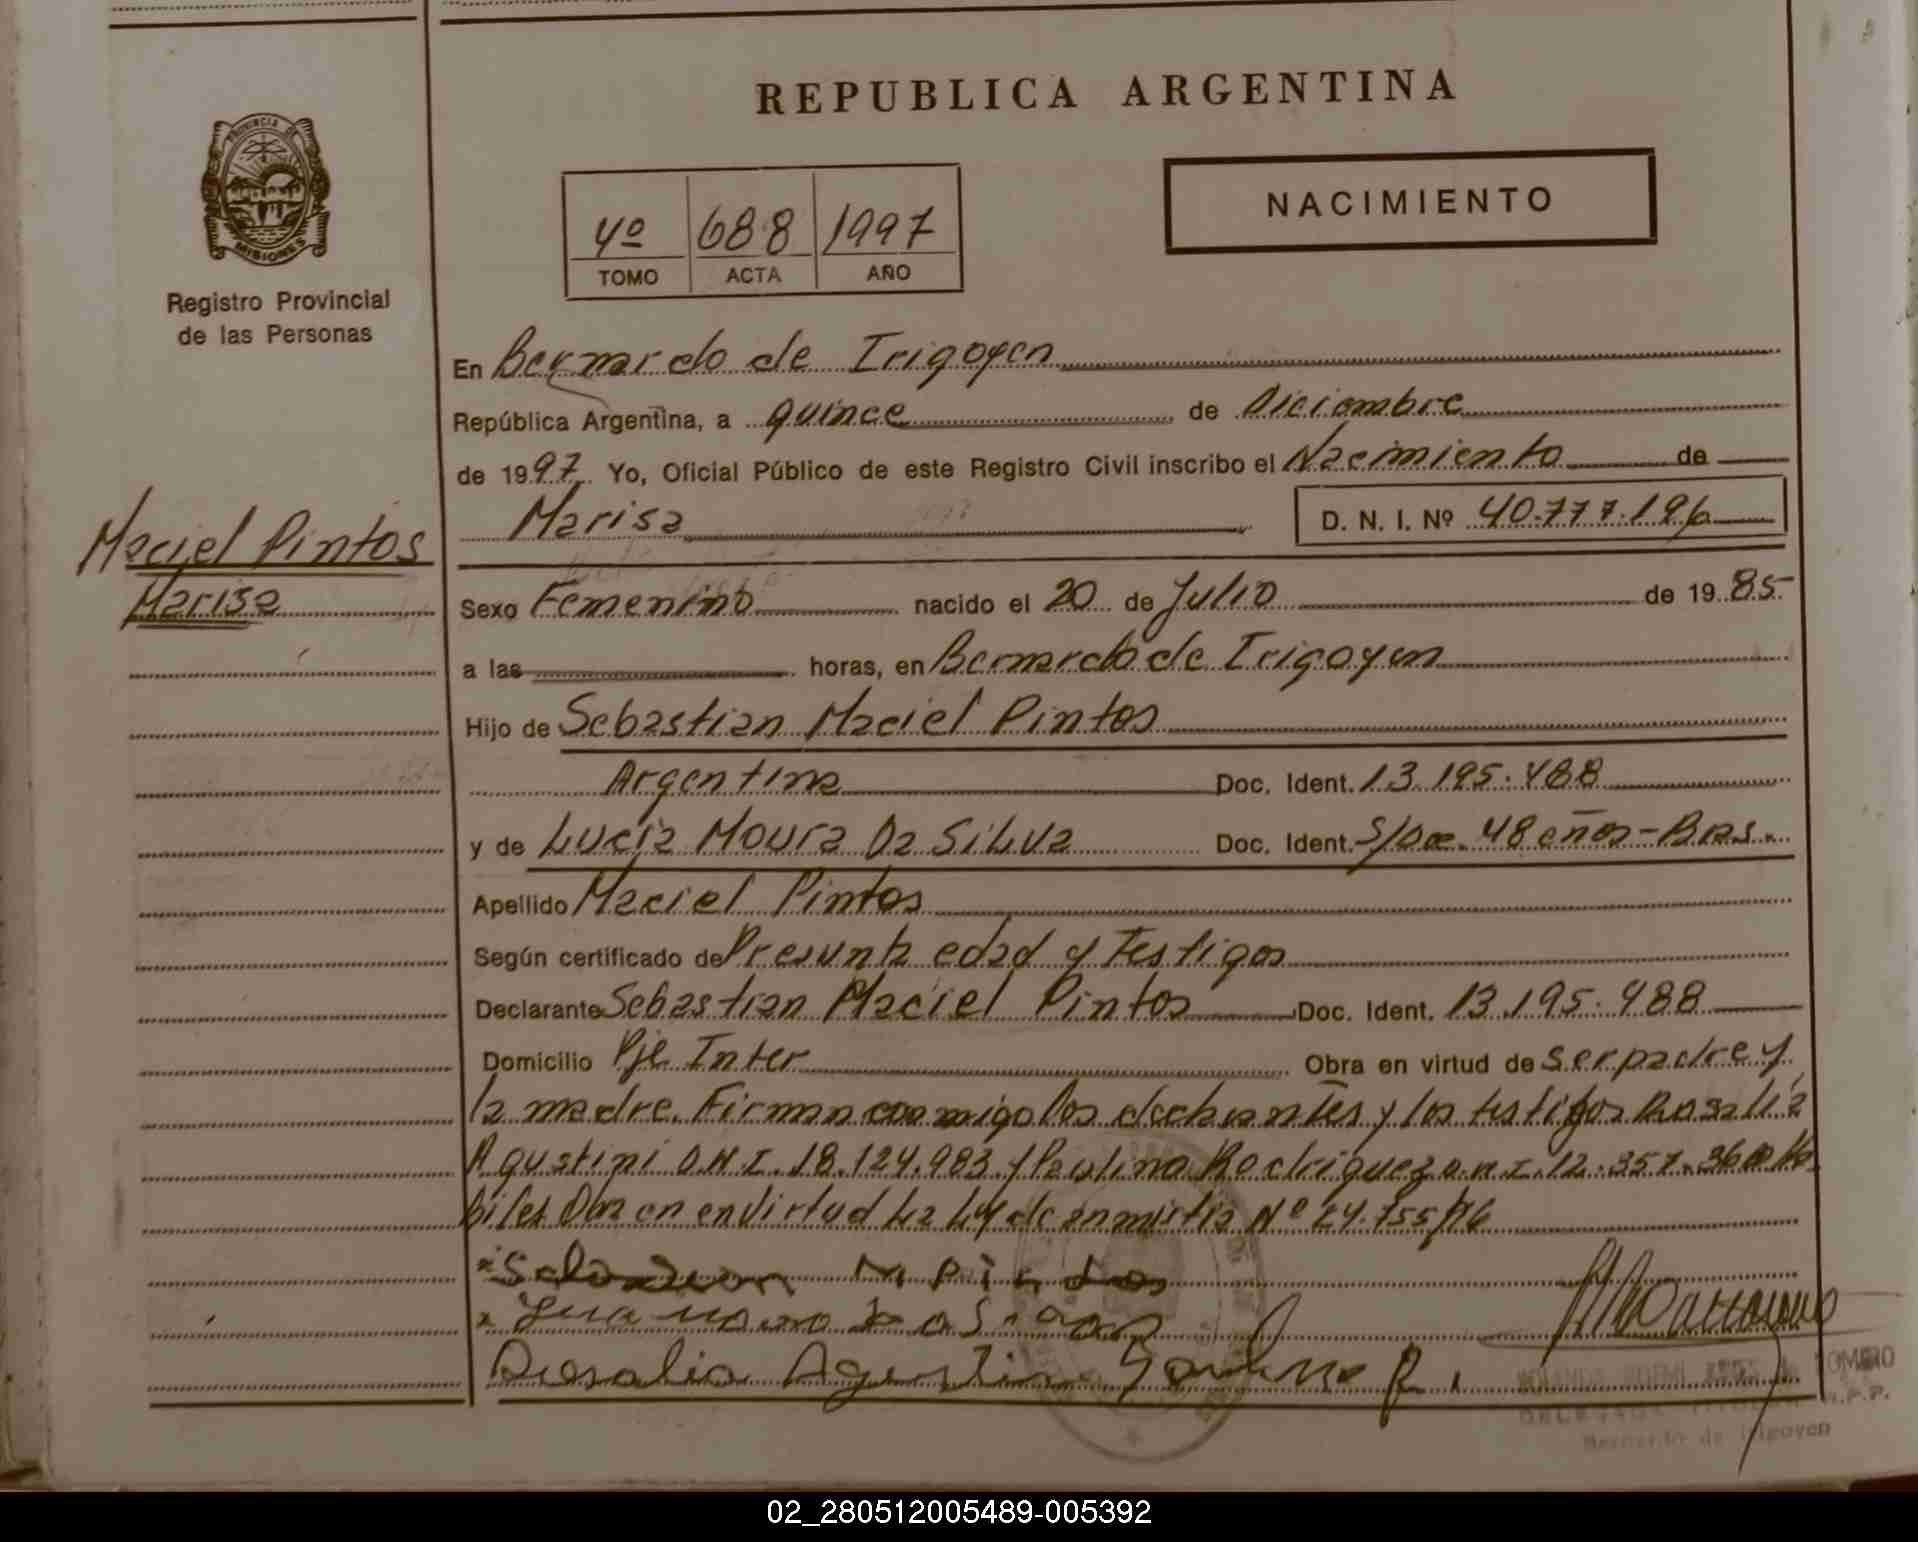 REPUBLICA ARGENTINA
PROVINCIA DE
MISIONES
Registro Provincial
de las Personas
4º 688 1997
TOMO ACTA AÑO
NACIMIENTO
En Bernardo de Irigoyen
República Argentina, a quince de Diciembre
de 1997 Yo, Oficial Público de este Registro Civil inscribo el Nacimiento de
Marisa D. N. I. Nº 40.777.196
Maciel Pintos
Marisa
Sexo Femenino nacido el 20 de Julio de 1985
a las horas, en Bernardo de Irigoyen
Hijo de Sebastian Maciel Pintos
Argentina Doc. Ident. 13.195.488
y de Lucia Moura Da Silva Doc. Ident. S/Doc. 48 años - Bras.
Apellido Maciel Pintos
Según certificado de Presunta edad y Testigos
Declarante Sebastian Maciel Pintos Doc. Ident. 13.195.488
Domicilio Pje Inter Obra en virtud de ser padre y
la madre. Firman conmigo los declarantes y los testigos Rosalia
Agustini D.N.I. 18.124.983 y Paulino Rodriguez D.N.I. 12.357.360 Ha
biles en virtud La Ley de Nº 24.755/96
M Pintos
Rosalia Agustini R.
Bernardo de Irigoyen
02_280512005489-005392